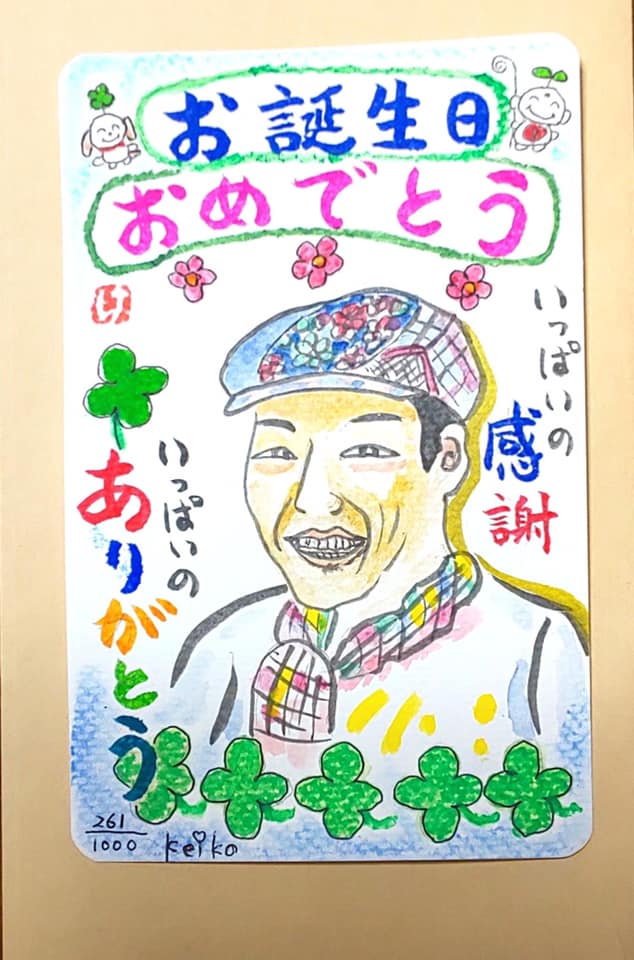 お誕生日
おめでとう
いっぱいの
感謝
いっぱいの
ありがとう
261
1000
Keiko